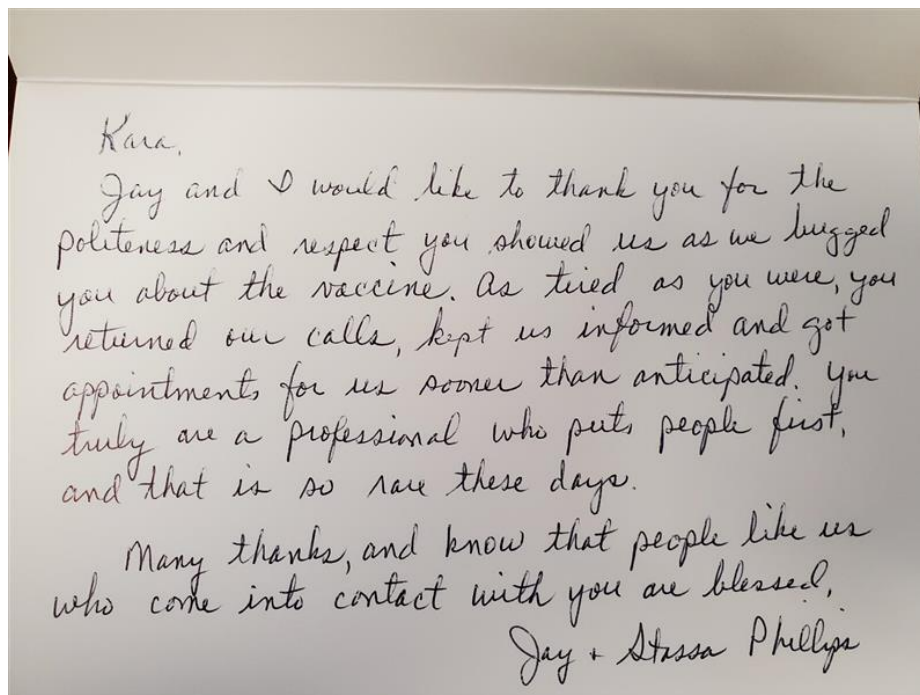 Kara,
Jay and I would like to thank you for the
politeness and respect you showed us as we bugged
you about the vaccine. As tired as you were, you
returned our calls, kept us informed and got
appointments for us sooner than anticipated. You
truly are a professional who puts people first,
and that is so rare these days.
Many thanks, and know that people like us
who come into contact with you are blessed,
Jay + Stassa Phillips